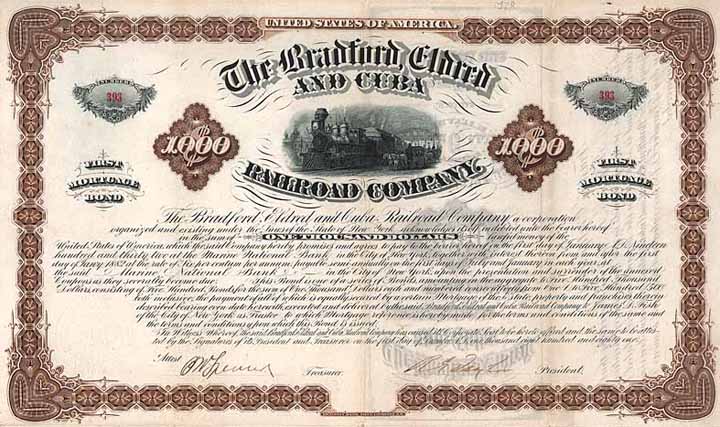 UNITED STATES OF AMERICA.
The Bradford, Eldred
AND CUBA
RAILROAD COMPANY.
NUMBER
393
NUMBER
393
$1000
$1000
FIRST
MORTGAGE
BOND
FIRST
MORTGAGE
BOND
The Bradford, Eldred and Cuba Railroad Company a corporation
organized and existing under the laws of the State of New York acknowledges itself indebted unto the bearer hereof
in the sum of ONE THOUSAND DOLLARS lawful money of the
United States of America, which the said Company hereby promises and agrees to pay to the bearer hereof on the first day of January A.D. Nineteen
hundred and thirty two at the Marine National Bank, in the City of New York, together with interest thereon from and after the first
day of at the rate of six per centum per annum, payable semi annually on the first days of July and January in each year, at
the said Marine National Bank in the City of New York, upon the presentation and surrender of the annexed
Coupons as they severally become due. This Bond is one of a series of Bonds, amounting in the aggregate to Five Hundred Thousand
Dollars, consisting of Five Hundred Bonds for the sum of One Thousand Dollars each and numbered consecutively from One to Five Hundred
both inclusive, the payment of all of which is equally secured by a certain Mortgage of the Estate, property and franchises therein
described bearing even date herewith executed and delivered by the said Bradford, Eldred and Cuba Railroad Company to
of the City of New York as Trustee to which Mortgage reference is hereby made for the terms and conditions of the same and
the terms and conditions upon which this Bond is issued.
In Witness Whereof the said Bradford, Eldred and Cuba Railroad Company has caused its Corporate Seal to be hereto affixed and the same to be attes-
ted by the Signatures of its President and Treasurer on the first day of one thousand eight hundred and eighty one.
Attest
Treasurer.
President.